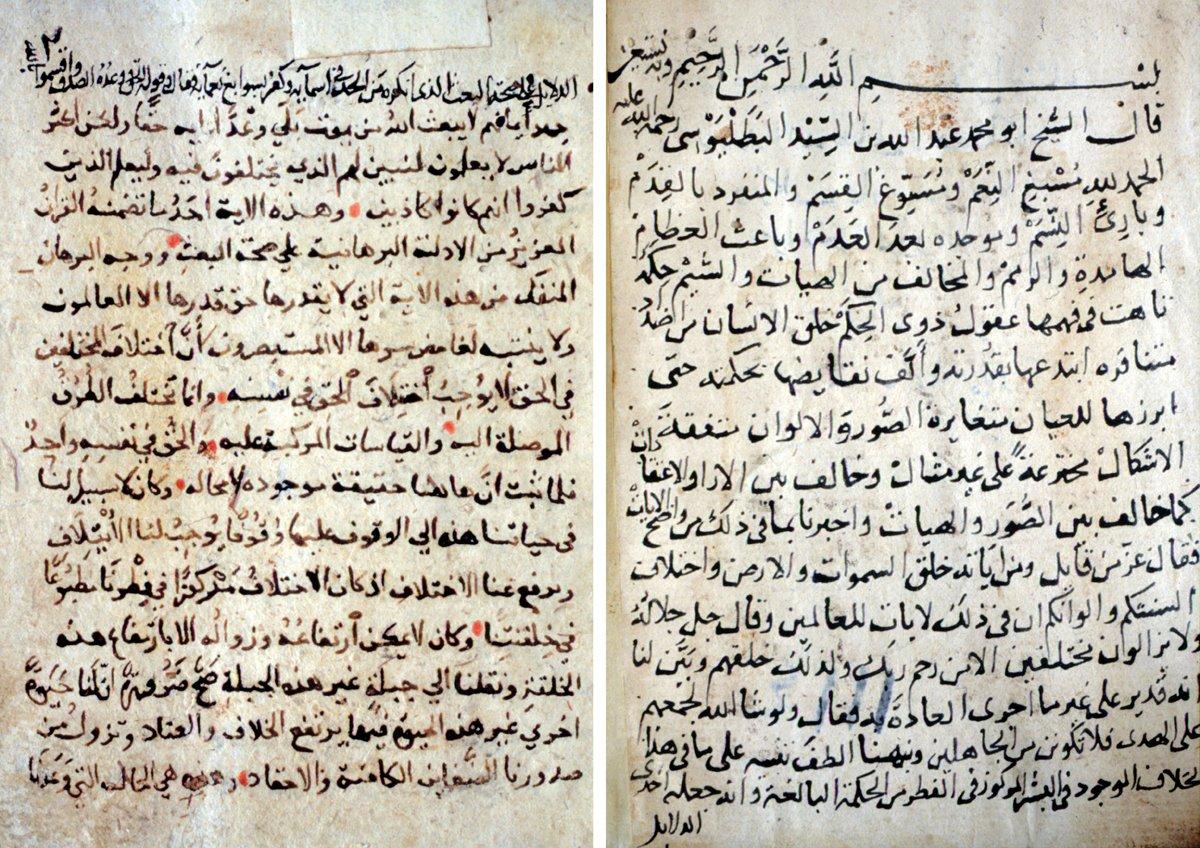 بسم الله الرحمن الرحيم وبه نستعين
قال الشيخ ابو محمد عبد الله بن السيد البطليوسى رحمة الله عليه
الحمد لله مسبغ النعم ومسوغ القسم والمنفرد بالقدم
وبارئ النسم وموجده بعد العدم وباعث العظام
الهامدة والرمم والمخالف بين الهيات والشيم حكمة
تاهت في فهمها عقول ذوى الحكم خلق الانسان من اضداد
متنافره ابتدعها بقدرته والف نقايضها بحكمته حتى
ابرزها للعيان متغايرة الصور والالوان متفقة
الاشكال مخترعة على غير مثال وخالف بين الارا والاعتقادات
كما خالف بين الصور والهيات واخبرنا بما في ذلك من واضح الايات
فقال عز من قايل ومن اياته خلق السموات والارض واختلاف
السنتكم والوانكم ان في ذلك لايات للعالمين وقال جل جلاله
ولا يزالون مختلفين الا من رحم ربك ولذلك خلقهم وبين لنا
انه قدير على غير ما اجرى العادة به فقال ولو شا الله لجمعهم
على الهدى فلا تكونن من الجاهلين ونبهنا الطف تنبيه على ما في هذا
الخلاف الموجود في البشر المركوز في الفطر من الحكمة البالغة وانه جعله احدى
الدلايل
الدلايل على صحة البعث الذى انكره من الحد في اسمايه وكفر بسوابغ نعمايه فقال وقوله الحق ووعده الصدق واقسموا بالله
جهد ايمانهم لا يبعث الله من يموت بلي وعدا عليه حقا ولكن اكثر
الناس لا يعلمون ليبين لهم الذي يختلفون فيه وليعلم الذين
كفروا انهم كانوا كاذبين وهذه الاية احد ما تضمنه القران
العزيز من الادلة البرهانية علي صحة البعث ووجه البرهان
المنفك من هذه الاية التي لا يقدرها حق قدرها الا العالمون
ولا ينتبه لغامض سرها الا المستبصرون ان اختلاف المختلفين
في الحق لا يوجب اختلاف الحق في نفسه وانما تختلف الطرق
الموصلة اليه والقياسات المركبة عليه والحق في نفسه واحد
فلما ثبت ان هاهنا حقيقة موجودة لا محاله وكان لا سبيل لنا
في حياتنا هذه الي الوقوف عليها وقوفا يوجب لنا الايتلاف
ويرفع عنا الاختلاف اذ كان الاختلاف مركوزا في فطرنا مطبوعا
في خلقتنا وكان لا يمكن ارتفاعه وزواله الا بارتفاع هذه
الخلقة ونقلنا الي جبلة غير هذه الجبلة صح ضرورة ان لنا حيوة
اخري غير هذه الحيوة فيها يرتفع الخلاف والعناد وتزول من
صدورنا الضغاين الكامنة والاحقاد وهذه هي الحال التي وعدنا